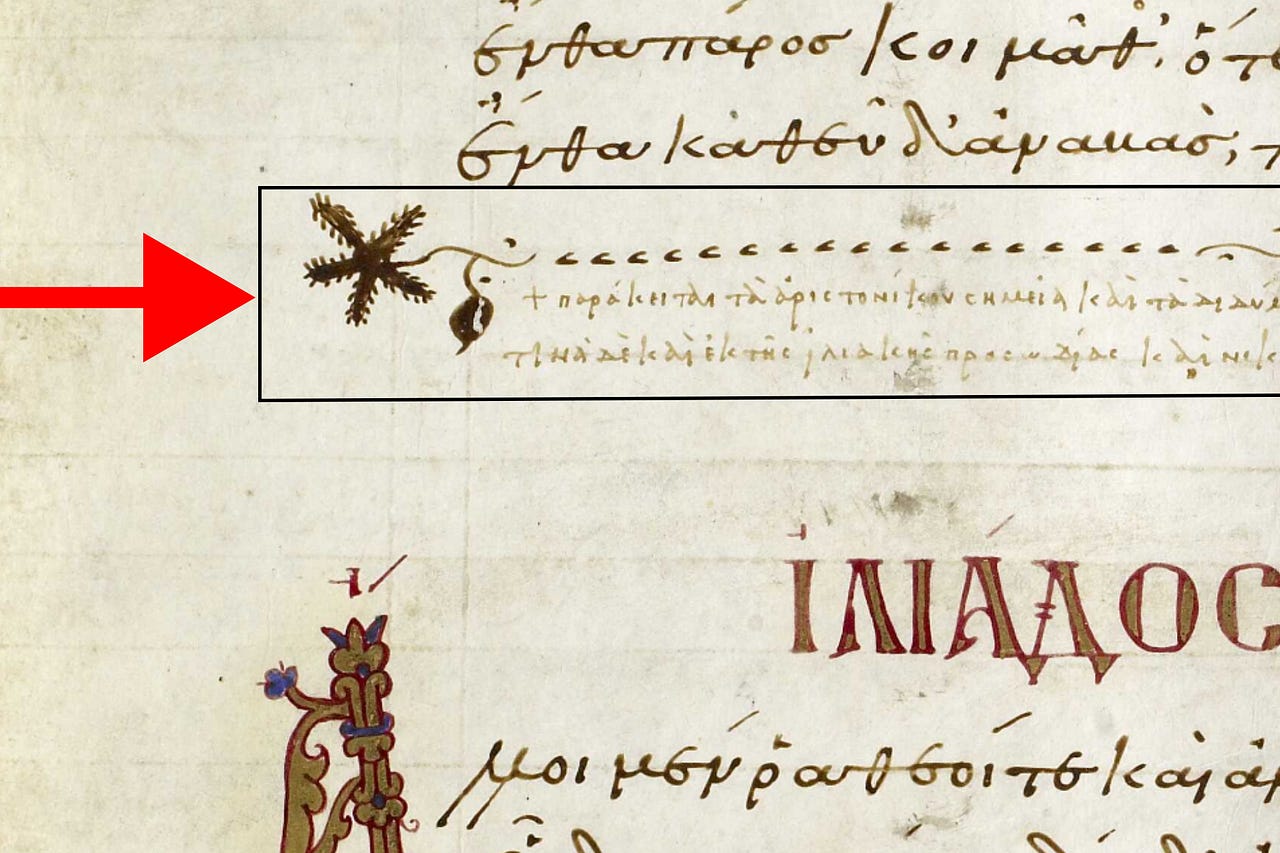 ἔνθα πάρος κοιμᾶθ', ὅτε
ἔνθα καθεῦδ' ἀναβὰς,
+ παράκειται τὰ ἀριστονίκου σημεῖα καὶ τὰ διδύ
τινὰ δὲ καὶ ἐκ τῆς ἰλιακῆς προσωδίας καὶ νικ
ἸΛΙΆΔΟΣ
Ἄλλοι μέν ῥα θεοί τε καὶ ἀ